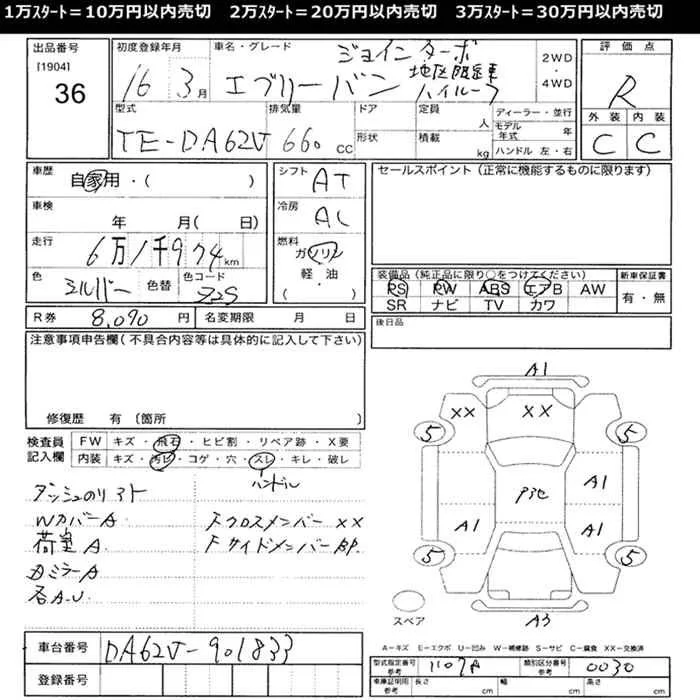 1万ｽﾀｰﾄ＝10万円以内売切　2万ｽﾀｰﾄ＝20万円以内売切　3万ｽﾀｰﾄ＝30万円以内売切
出品番号
[1904]
36
初度登録年月
16 3月
車名・グレード
ジョインターボ
エブリーバン
地区限定車
ハイルーフ
2WD
・
4WD
評価点
R
外装 内装
C C
型式
TE-DA62V
排気量
660 CC
ドア
形状
定員 人
積載 kg
ディーラー・並行
モデル年式 年
ハンドル 左・右
車歴
自家用・( )
シフト
AT
セールスポイント（正常に機能するものに限ります）
車検
年 月( 日)
冷房
AC
走行
6万1千974km
燃料
ガソリン
軽・油
・( )
色
シルバー
色替
色コード
Z2S
装備品（純正品に限り○をつけてください）
PS PW ABS エアB AW
SR ナビ TV カワ
新車保証書
有・無
R券 8,090円
名変期限 月 日
後日品
注意事項申告欄（不具合内容等は具体的に記入して下さい）
修復歴 有（箇所 ）
検査員
記入欄
FW キズ・飛石・ヒビ割・リペア跡・X要
内装 キズ・汚レ・コゲ・穴・スレ・キレ・破レ
ハンドル
WカバーA
荷室A
各A.U
FクロスメンバーXX
FサイドメンバーBP.
A1
XX XX
5 5
A1
A1 A1
5 5
スペア
A3
A－キズ E－エクボ U－凹み W－補修跡 S－サビ C－腐食 XX－交換済
車台番号 DA62V-901833
登録番号
型式指定番号
参考
1107A
類別区分番号
参考
0030
車庫証明用
参考
長さ cm 幅 cm 高さ cm